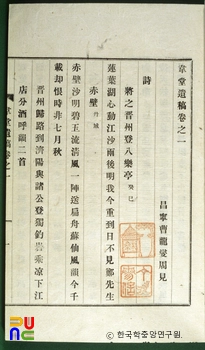 韋堂遺稿卷之一
昌寧曺龍燮周見
詩
將之晋州登八樂亭 癸巳
蓮葉湖心動江沙雨後明我今重到日不見鄭先生
赤壁 丹城
赤壁沙明碧玉流淸風一陣送扁舟蘇仙風韻今千
載却恨時非七月秋
晋州歸路到濟陽與諸公登獨釣臺乘凉下江
店分酒呼韻二首
韋堂遺稿卷之一
한국학중앙연구원